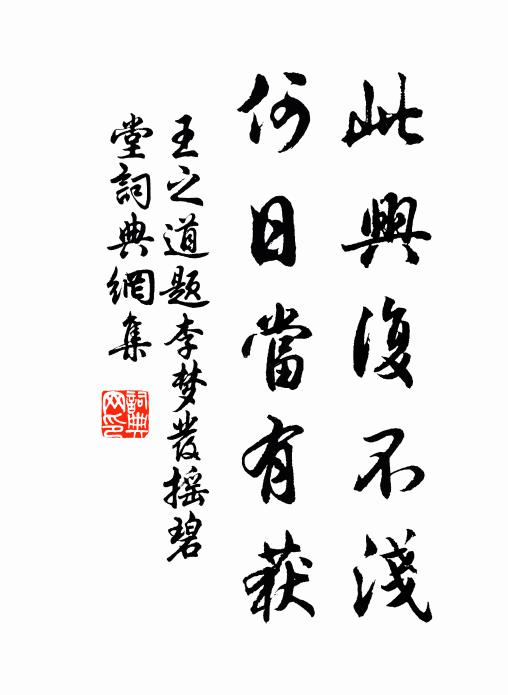 此興復不淺
何日當有获
王之道题李梦發摇碧
堂詞典網集
詞典
网印